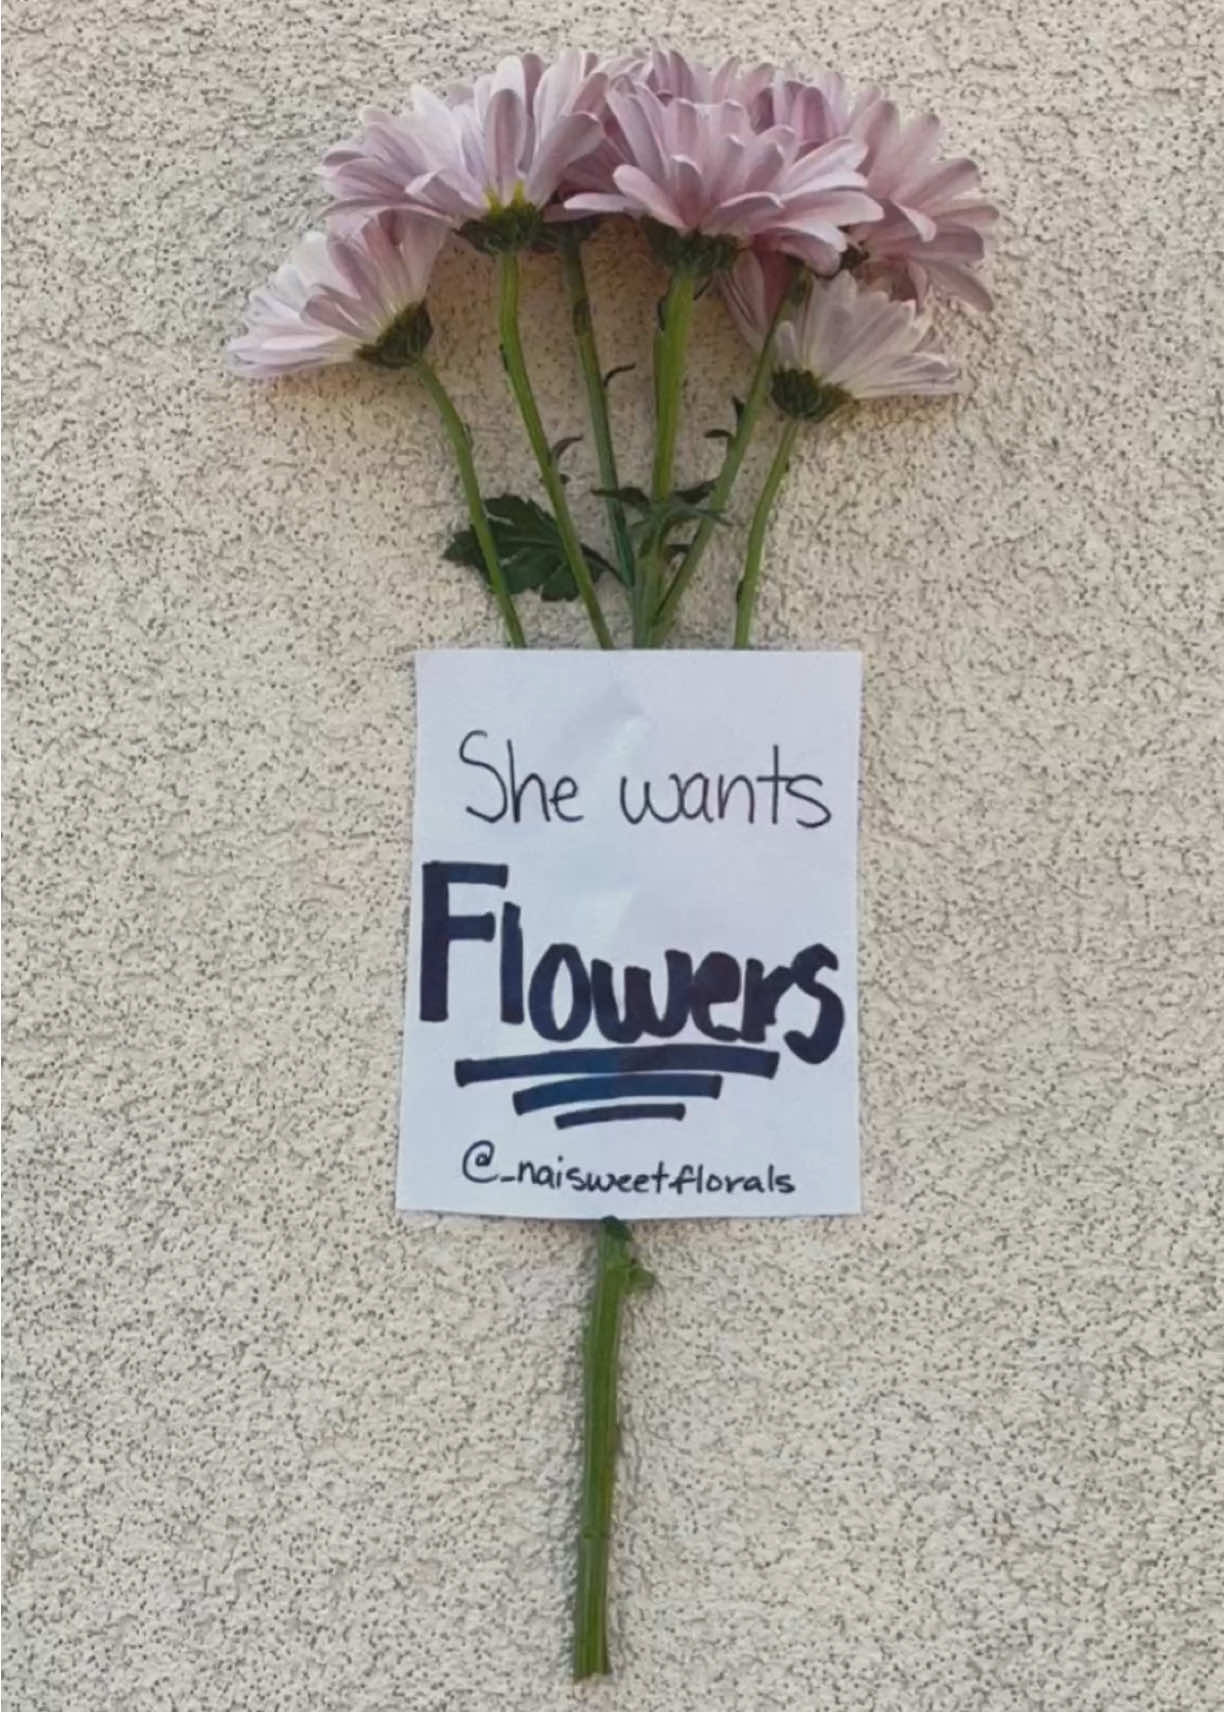 She wants
Flowers
@_naisweetflorals